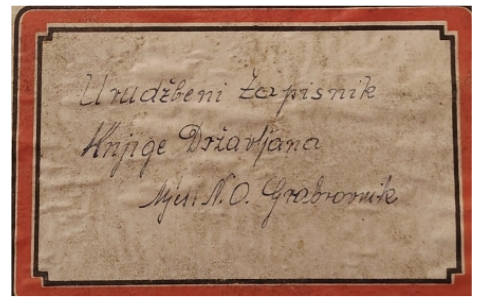 Urudžbeni Zapisnik
Knjige Državljana
Mjes. N. O. Grabrovnik